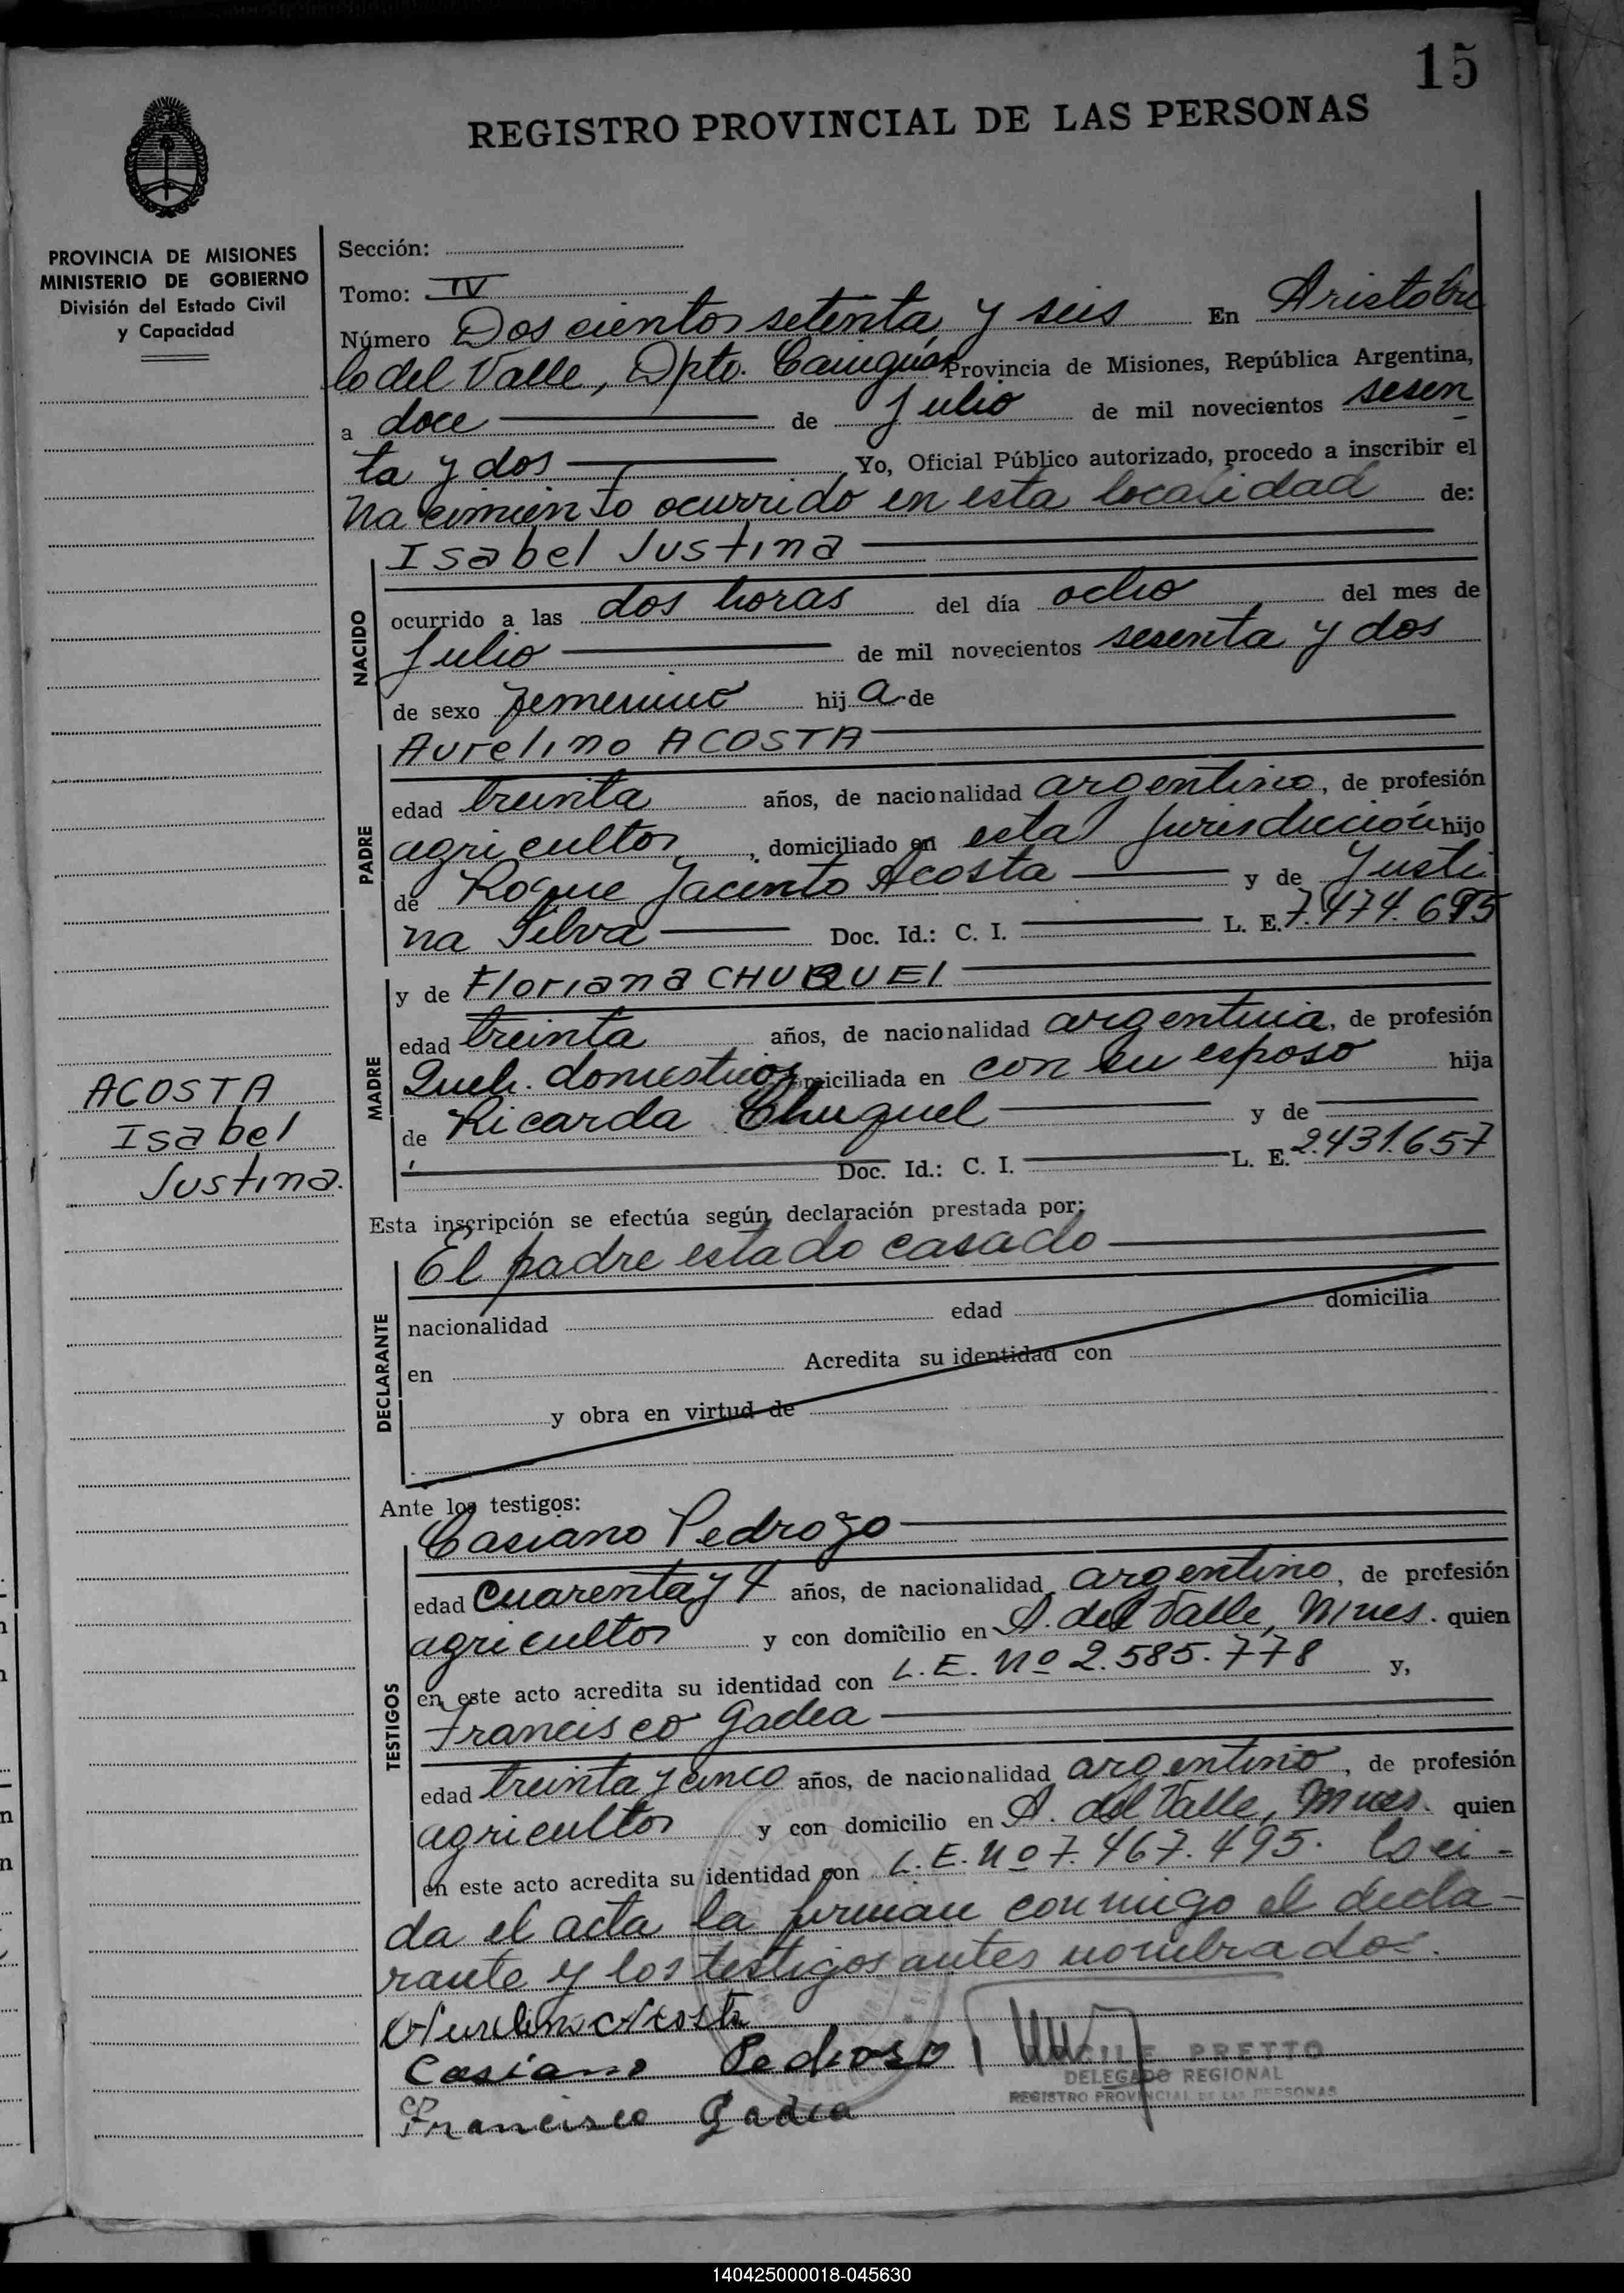 15
REGISTRO PROVINCIAL DE LAS PERSONAS
PROVINCIA DE MISIONES
MINISTERIO DE GOBIERNO
División del Estado Civil
y Capacidad
ACOSTA
Isabel
Justina.
Sección:
Tomo: IV
Número Doscientos setenta y seis En Aristobu
lo del Valle, Dpto. Cainguás Provincia de Misiones, República Argentina,
a doce de Julio de mil novecientos sesen
ta y dos Yo, Oficial Público autorizado, procedo a inscribir el
nacimiento ocurrido en esta localidad de:
NACIDO
Isabel Justina
ocurrido a las dos horas del día ocho del mes de
Julio de mil novecientos sesenta y dos
de sexo femenino hija de
PADRE
Aurelino ACOSTA
edad treinta años, de nacionalidad argentino, de profesión
agricultor, domiciliado en esta Jurisdicción hijo
de Roque Jacinto Acosta y de Justi
na Silva Doc. Id.: C. I. L. E. 7.474.695
MADRE
y de Floriana CHUQUEL
edad treinta años, de nacionalidad argentina, de profesión
Queh. domesticos domiciliada en con su esposo hija
de Ricarda Chuquel y de
Doc. Id.: C. I. L. E. 2.431.657
Esta inscripción se efectúa según declaración prestada por:
DECLARANTE
El padre estado casado
nacionalidad edad domicilia
en Acredita su identidad con
y obra en virtud de
Ante los testigos:
TESTIGOS
Casiano Pedrozo
edad cuarenta y 4 años, de nacionalidad argentino, de profesión
agricultor y con domicilio en A. del Valle, Mnes. quien
en este acto acredita su identidad con L.E. Nº 2.585.778 y,
Francisco Gadea
edad treinta y cinco años, de nacionalidad argentino, de profesión
agricultor y con domicilio en A. del Valle, Mnes. quien
en este acto acredita su identidad con L.E. Nº 7.467.495. Leci-
da el acta la firman conmigo el decla-
rante y los testigos antes nombrados.
Aurelino Acosta
Casiano Pedroso
Francisco Gadea
PRETTO
DELEGADO REGIONAL
REGISTRO PROVINCIAL DE LAS PERSONAS
140425000018-045630